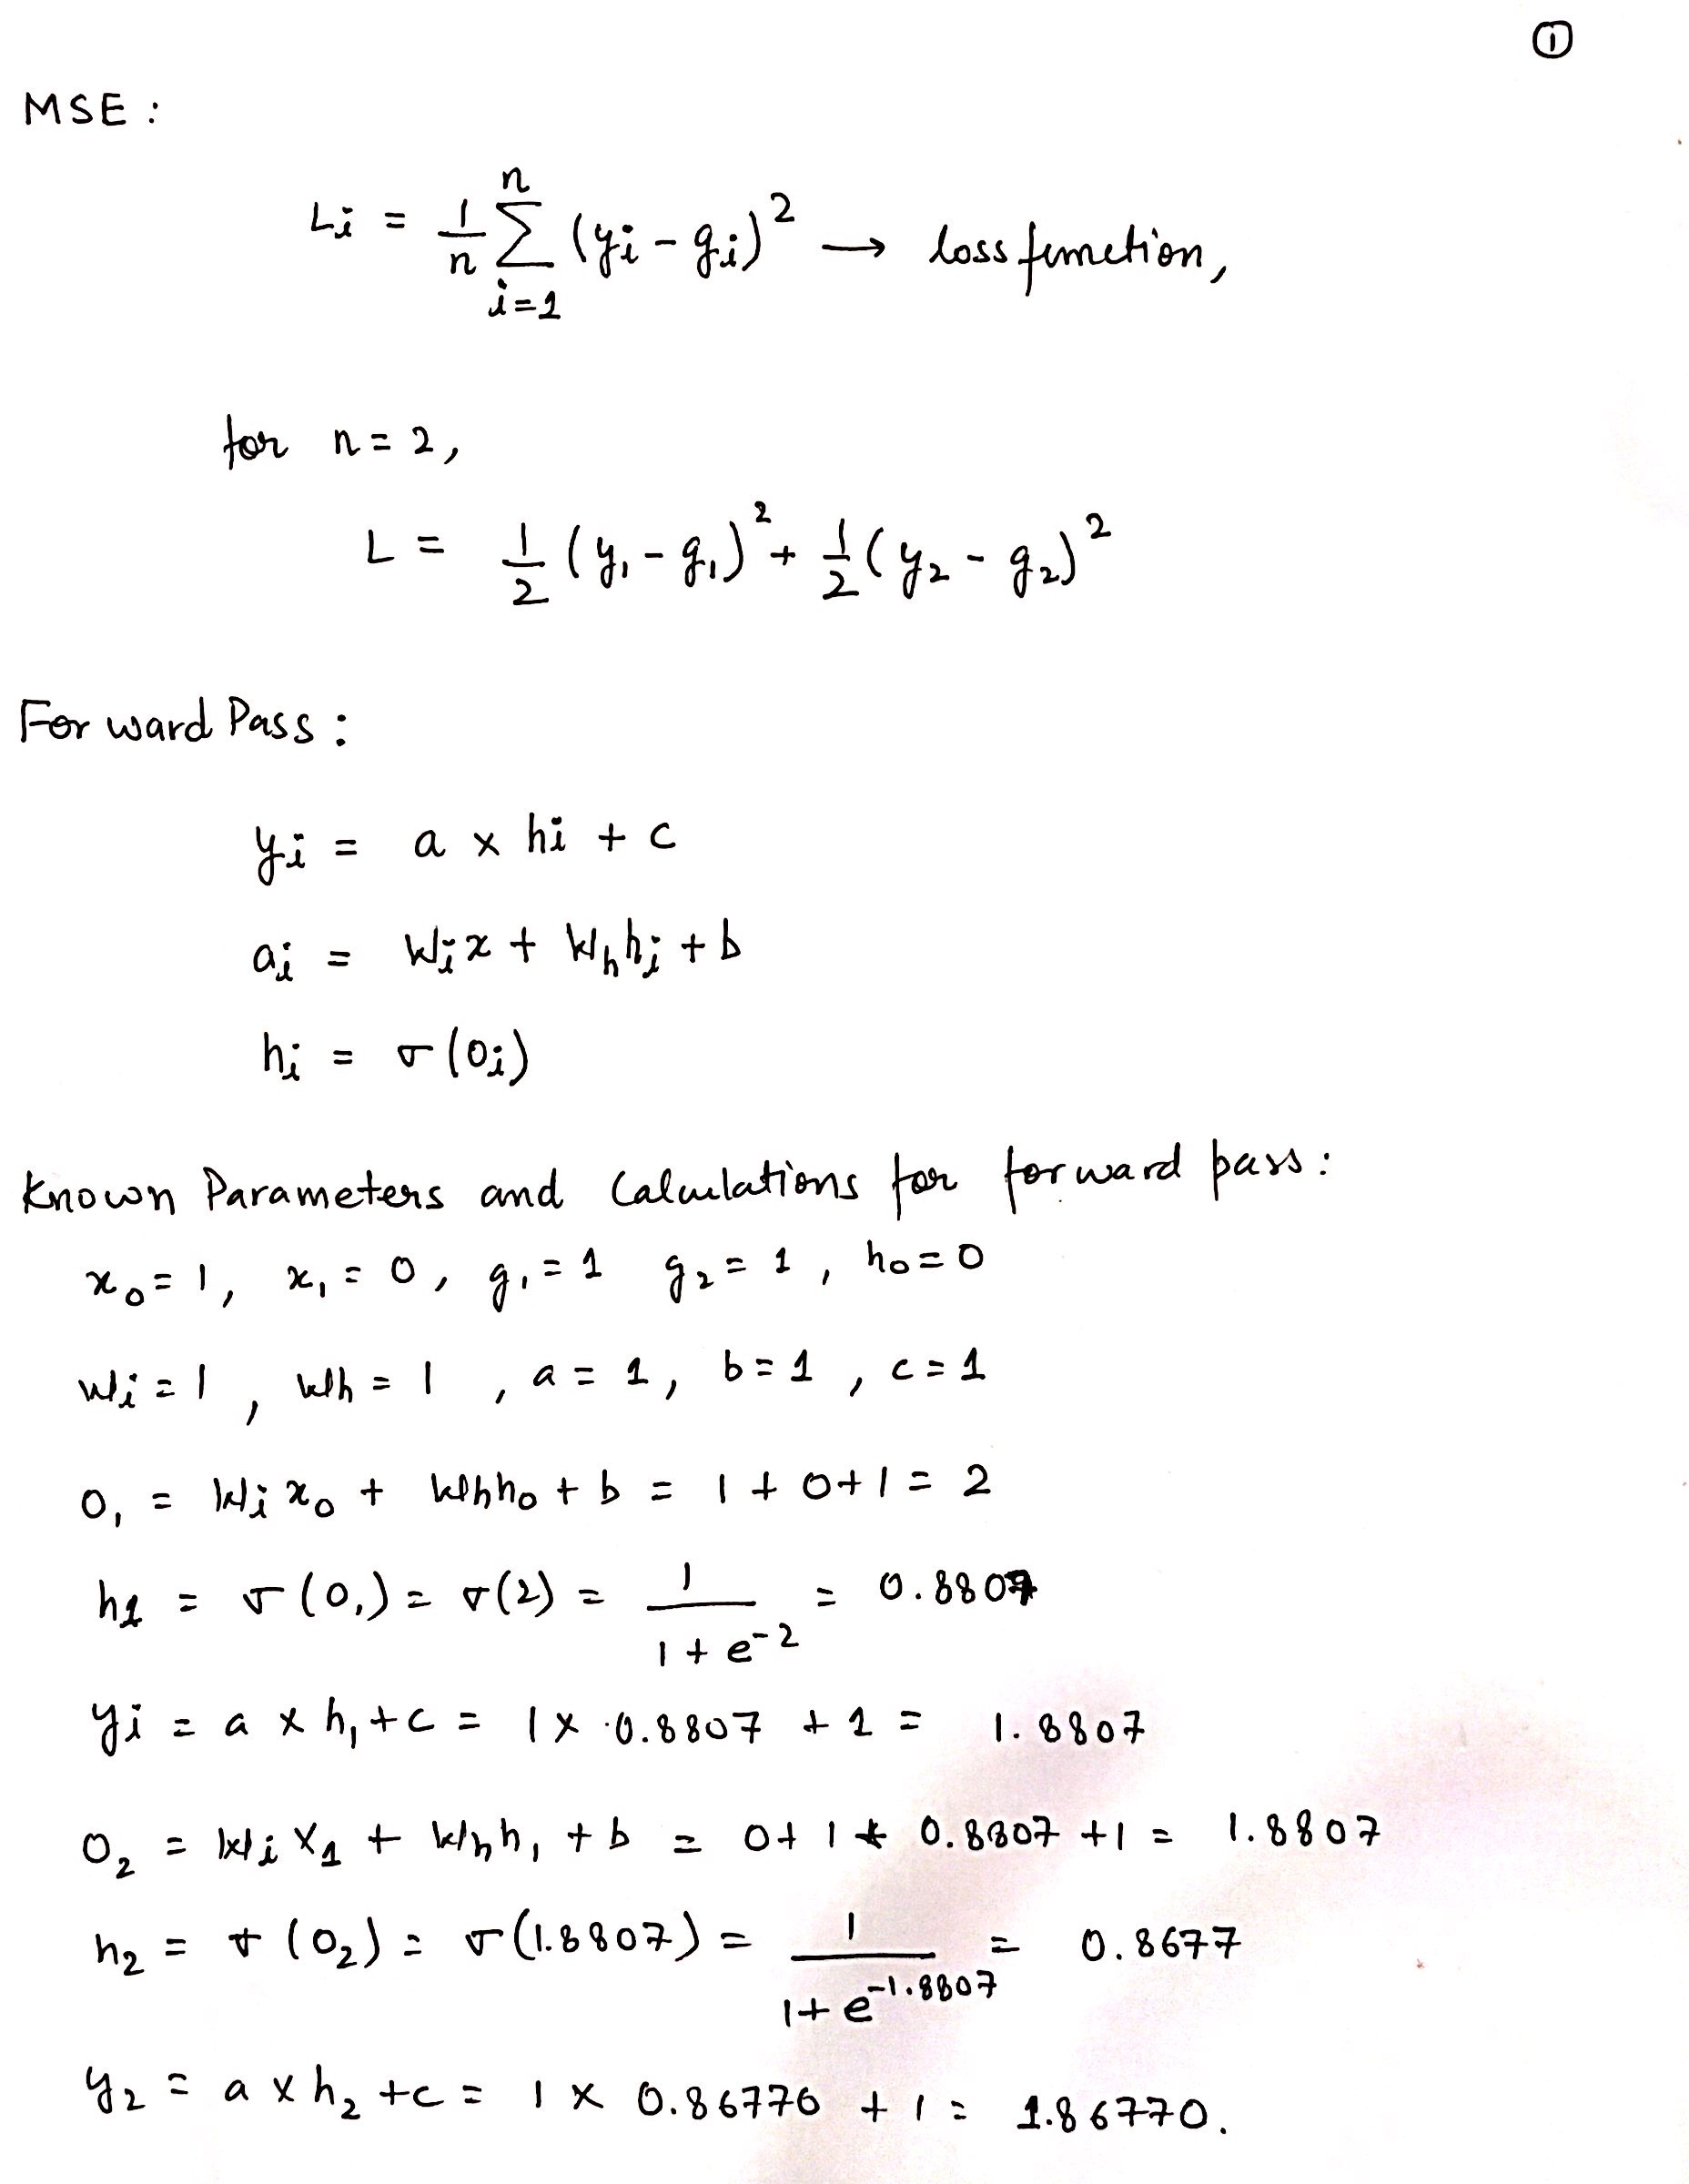 ①
MSE :
Li = 1/n n∑i=1 (yi - gi)² → loss function,
for n = 2,
L = 1/2 (y₁ - g₁)² + 1/2 (y₂ - g₂)²
Forward Pass :
yi = a x hi + c
ai = Wi x + Wh hi + b
hi = σ(oi)
Known Parameters and Calculations for forward pass :
x₀ = 1, x₁ = 0, g₁ = 1 g₂ = 1, h₀ = 0
Wi = 1, Wh = 1, a = 1, b = 1, c = 1
O₁ = Wi x₀ + Wh h₀ + b = 1 + 0 + 1 = 2
h1 = σ(O₁) = σ(2) = 1/(1 + e⁻²) = 0.8807
yi = a x h₁ + c = 1 x 0.8807 + 1 = 1.8807
O₂ = Wi X₁ + Wh h₁ + b = 0 + 1 * 0.8807 + 1 = 1.8807
h₂ = σ(O₂) = σ(1.8807) = 1/(1 + e^-1.8807) = 0.8677
y₂ = a x h₂ + c = 1 x 0.86770 + 1 = 1.86770.